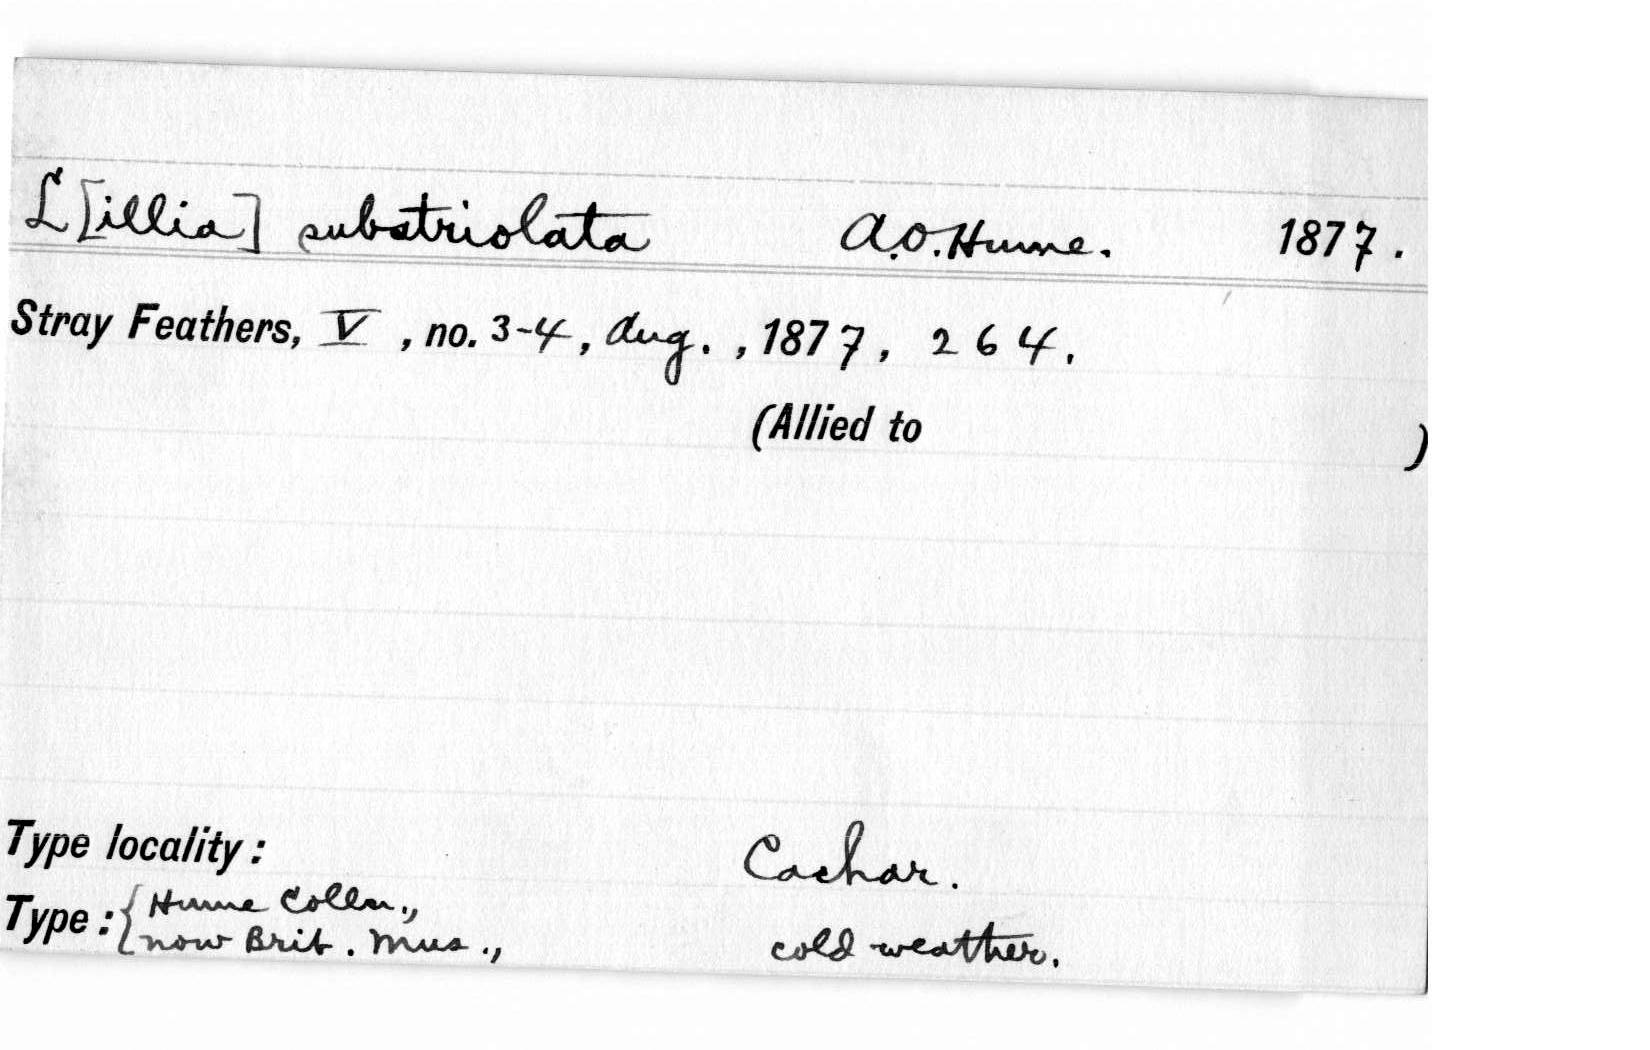 L[illia] substriolata A.O. Hume. 1877.
Stray Feathers, V, no. 3-4, Aug., 1877, 264.
(Allied to )
Type locality: Cachar.
Type: { Hume Colln.,
now Brit. Mus., cold weather.